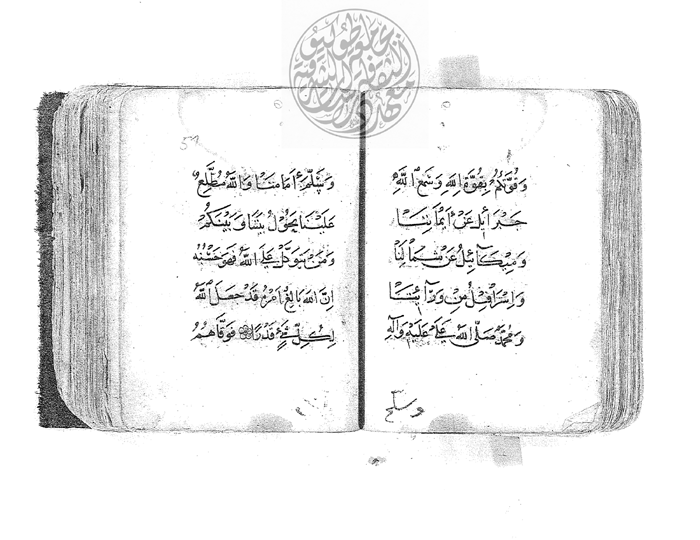 وَقُوَّتُكُمْ بِقُوَّةِ اللهِ وَسَمْعِ اللهِ
جبرائيل عن أيماننا
وميكائيل عن شمائلنا
وإسرافيل من ورائنا
ومحمد صلى الله عليه وآله
وسلم
وسلم أمامنا والله مطلع
علينا يحول بيننا وبينكم
ومن يتوكل على الله فهو حسبه
إن الله بالغ أمره قد جعل الله
لكل شيء قدرا فوقاهم